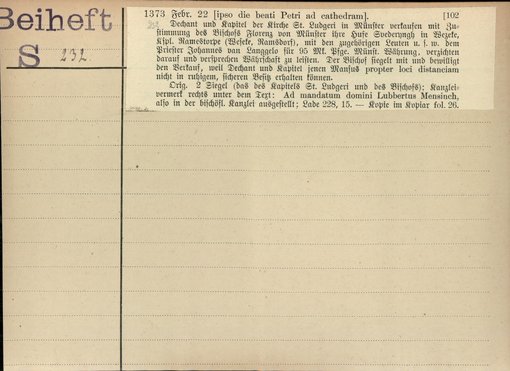 Beiheft
S 232
1373 Febr. 22 [ipso die beati Petri ad cathedram]. [102
Dechant und Kapitel der Kirche St. Ludgeri in Münster verkaufen mit Zu-
stimmung des Bischofs Florenz von Münster ihre Hufe Svederyngh in Wezeke,
Kspl. Ramestorpe (Weseke, Ramsdorf), mit den zugehörigen Leuten u. s. w. dem
Priester Johannes van Langgelo für 95 Mk. Pfge. Münst. Währung, verzichten
darauf und versprechen Währschaft zu leisten. Der Bischof siegelt mit und bewilligt
den Verkauf, weil Dechant und Kapitel jenen Mansus propter loci distanciam
nicht in ruhigem, sicheren Besitz erhalten können.
Orig. 2 Siegel (das des Kapitels St. Ludgeri und des Bischofs); Kanzlei-
vermerk rechts unter dem Text: Ad mandatum domini Lubbertus Mensinch,
also in der bischöfl. Kanzlei ausgestellt; Lade 228, 15. — Kopie im Kopiar fol. 26.